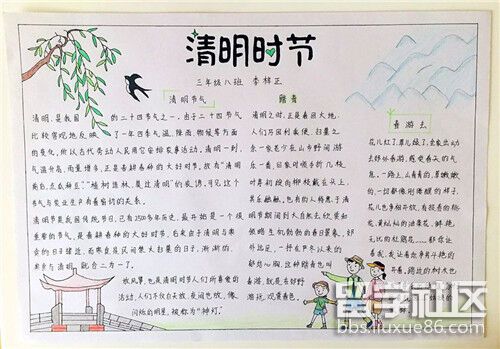 清明时节
三年级八班 李梓正
清明节气
清明,是我国的二十四节气之一。由于二十四节气
比较客观地反映了一年四季气温、降雨、物候等方面
的变化,所以古代劳动人民用它安排农事活动。清明一到,
气温升高,雨量增多,正是春耕春种的大好时节。故有“清明
前后,点瓜种豆”。“植树造林,莫过清明”的农谚。可见这个
节气与农业生产有着密切的关系。
清明节是我国传统节日,已有2500多年历史。最开始是一个很
重要的节气,是春耕春种的大好时节。后来由于清明与寒
食的日子接近,而寒食是民间禁火扫墓的日子,渐渐的,
寒食与清明就合二为一了。
放风筝,也是清明时节人们所喜爱的
活动。人们不仅白天放,夜间也放。像
闪烁的明星,被称为“神灯”。
踏青
清明之时,正是春回大地,
人们乃因利乘便,扫墓之
余一家老少在山乡野间游
乐一番,回家时顺手折几枝
叶芽初绽的柳枝戴在头上,
其乐融融。也有的人特意于清
明节期间到大自然去欣赏和
领略生机勃勃的春日景象,郊
外远足,一抒严冬以来的
郁结心胸,这种踏青也叫
春游,就是在好野
游玩,观赏春色。
春游去
花儿红了,草儿绿了,全家出动
去郊外春游,感受春天的气
息。一路上,山青青的,草嫩嫩
的,一切都像刚睡醒的样子,
花儿也争相开放,有粉的桃
花,黄灿灿的油菜花,鲜艳
无比的杜鹃花……都你让
着我,我让着你争月斗艳的
开着,路边的树大也
留学社区
bbs.liuxue86.com